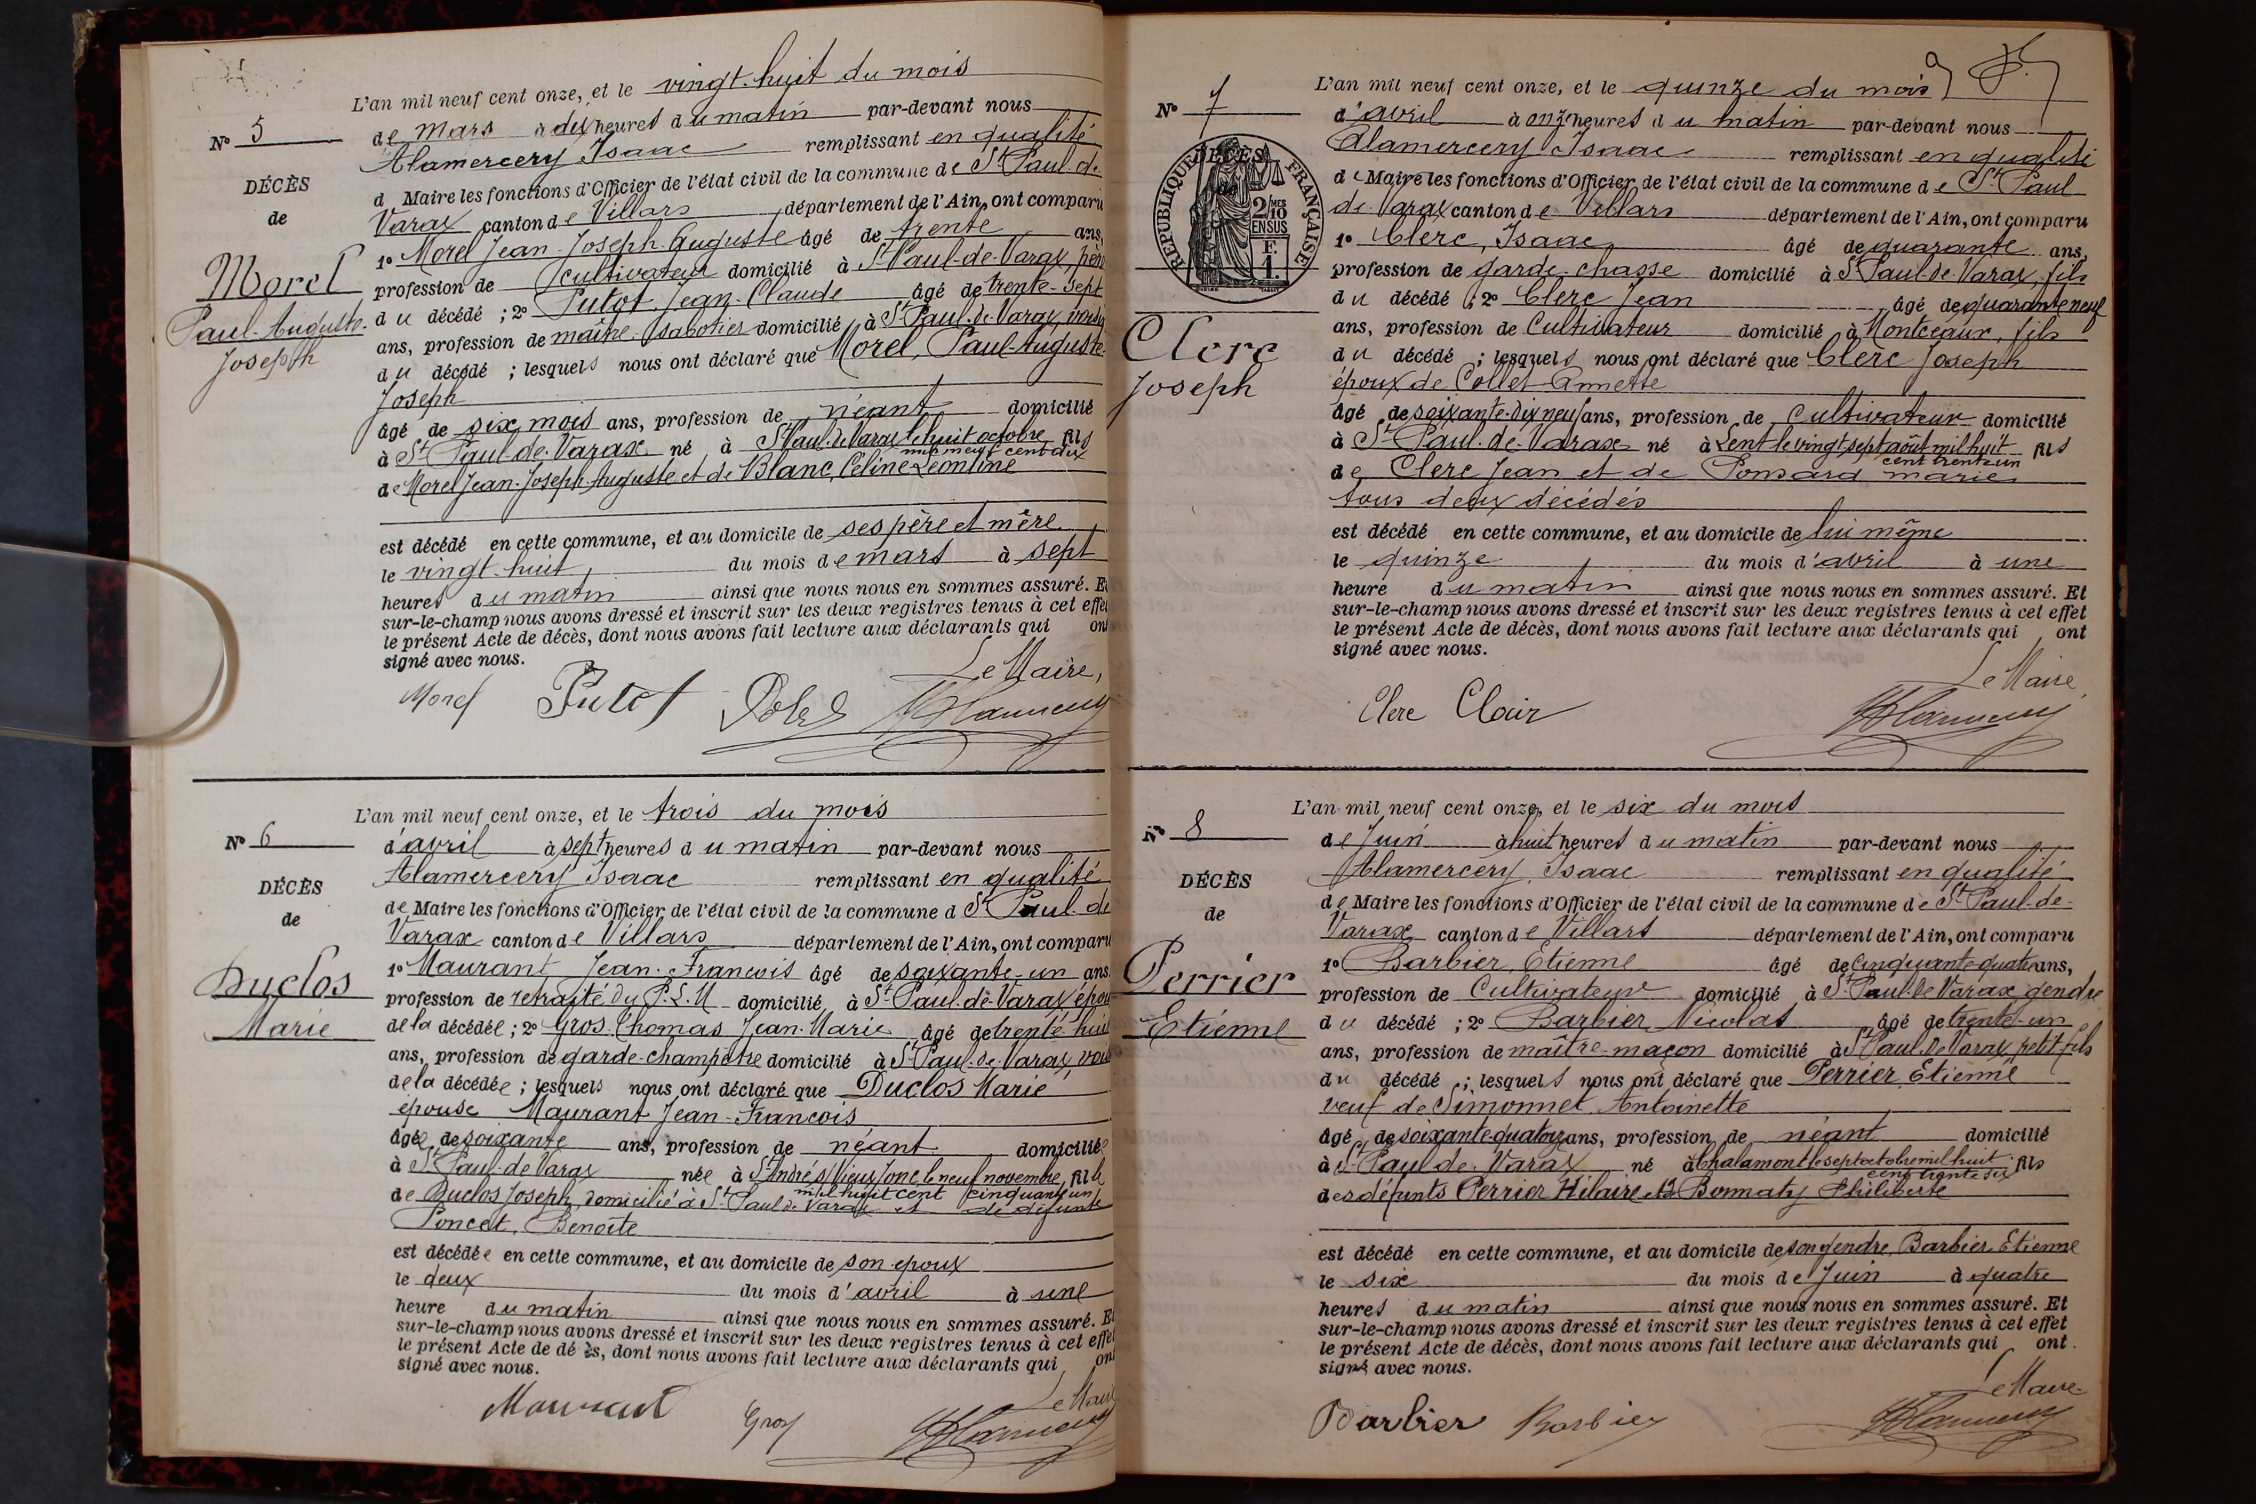 L'an mil neuf cent onze, et le vingt-huit du mois
N° 5
de Mars à dix heures du matin par-devant nous
Alamercery Isaac remplissant en qualité
DÉCÈS
d Maire les fonctions d'Officier de l'état civil de la commune de St Paul-de
de
Varax canton de Villars département de l'Ain, ont comparu
1° Morel Jean-Joseph-Auguste âgé de trente ans,
Morel
profession de cultivateur domicilié à St Paul-de-Varax, père
Paul-Auguste-
du décédé ; 2° Putot Jean-Claude âgé de trente-sept
Joseph
ans, profession de maître-sabotier domicilié à St Paul-de-Varax, voisin
du décédé ; lesquels nous ont déclaré que Morel, Paul-Auguste-
Joseph
âgé de six mois ans, profession de néant domicilié
à St Paul-de-Varax né à St Paul-de-Varax le huit octobre fils
mil neuf cent dix
de Morel Jean-Joseph-Auguste et de Blanc, Céline Léontine
est décédé en cette commune, et au domicile de ses père et mère
le vingt-huit du mois de mars à sept
heures du matin ainsi que nous nous en sommes assuré. Et
sur-le-champ nous avons dressé et inscrit sur les deux registres tenus à cet effet
le présent Acte de décès, dont nous avons fait lecture aux déclarants qui ont
signé avec nous.
Le Maire,
Morel Putot
L'an mil neuf cent onze, et le trois du mois
N° 6
d'avril à sept heures du matin par-devant nous
Alamercery Isaac remplissant en qualité
DÉCÈS
de Maire les fonctions d'Officier de l'état civil de la commune d St Paul-de
de
Varax canton de Villars département de l'Ain, ont comparu
1° Maurant Jean-François âgé de soixante-un ans
Duclos
profession de retraité du P.L.M domicilié à St Paul-de-Varax, époux
Marie
de la décédée ; 2° Gros Thomas Jean-Marie âgé de trente-huit
ans, profession de garde-champêtre domicilié à St Paul-de-Varax, voisin
de la décédée ; lesquels nous ont déclaré que Duclos Marie
épouse Maurant Jean-François
âgée de soixante ans, profession de néant domiciliée
à St Paul-de-Varax née à St André s/ Vieux Jonc le neuf novembre fille
mil huit cent cinquante un
de Duclos Joseph, domicilié à St Paul de Varax et de défunte
Poncet, Benoîte
est décédée en cette commune, et au domicile de son époux
le deux du mois d'avril à une
heure du matin ainsi que nous nous en sommes assuré. Et
sur-le-champ nous avons dressé et inscrit sur les deux registres tenus à cet effet
le présent Acte de dé ès, dont nous avons fait lecture aux déclarants qui ont
signé avec nous.
Le Maire
Maurant Gros
L'an mil neuf cent onze, et le quinze du mois
N° 7
d'avril à onze heures du matin par-devant nous
Alamercery Isaac remplissant en qualité
DÉCÈS
de Maire les fonctions d'Officier de l'état civil de la commune de St Paul
RÉPUBLIQUE FRANÇAISE
2/10 MES EN SUS
F 1.
de Varax canton de Villars département de l'Ain, ont comparu
1° Clerc, Isaac, âgé de quarante ans,
profession de garde-chasse domicilié à St Paul-de-Varax, fils
du décédé ; 2° Clerc Jean âgé de quarante neuf
Clerc
ans, profession de Cultivateur domicilié à Montceaux, fils
Joseph
du décédé ; lesquels nous ont déclaré que Clerc Joseph
époux de Collet Annette
âgé de soixante-dix neuf ans, profession de cultivateur domicilié
à St Paul-de-Varax né à Lent le vingt sept août mil huit fils
cent trente un
de Clerc Jean et de Ponsard Marie
tous deux décédés
est décédé en cette commune, et au domicile de lui même
le quinze du mois d'avril à une
heure du matin ainsi que nous nous en sommes assuré. Et
sur-le-champ nous avons dressé et inscrit sur les deux registres tenus à cet effet
le présent Acte de décès, dont nous avons fait lecture aux déclarants qui ont
signé avec nous.
Le Maire,
Clerc Clair
L'an mil neuf cent onze, et le six du mois
N° 8
de Juin à huit heures du matin par-devant nous
Alamercery, Isaac remplissant en qualité
DÉCÈS
de Maire les fonctions d'Officier de l'état civil de la commune de St Paul-de-
de
Varax canton de Villars département de l'Ain, ont comparu
1° Barbier, Etienne âgé de cinquante-quatre ans,
Perrier
profession de Cultivateur domicilié à St Paul de Varax, gendre
Etienne
du décédé ; 2° Barbier Nicolas âgé de trente-un
ans, profession de maître-maçon domicilié à St Paul-de Varax, petit fils
du décédé ; lesquels nous ont déclaré que Perrier, Etienne
veuf de Simonnet Antoinette
âgé de soixante quatorze ans, profession de néant domicilié
à St Paul de Varax né à Chalamont le sept octobre mil huit fils
cent trente six
des défunts Perrier Hilaire et Bonnaty Philiberte
est décédé en cette commune, et au domicile de son gendre, Barbier Etienne
le six du mois de Juin à quatre
heures du matin ainsi que nous nous en sommes assuré. Et
sur-le-champ nous avons dressé et inscrit sur les deux registres tenus à cet effet
le présent Acte de décès, dont nous avons fait lecture aux déclarants qui ont
signé avec nous.
Le Maire
Barbier Barbier